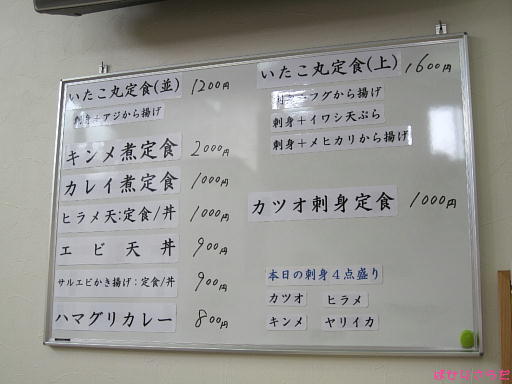 いたこ丸定食(並) 1200円
刺身+アジから揚げ
キンメ煮定食 2000円
カレイ煮定食 1000円
ヒラメ天:定食/丼 1000円
エビ天丼 900円
サルエビかき揚げ:定食/丼 900円
ハマグリカレー 800円
いたこ丸定食(上) 1600円
刺身+フグから揚げ
刺身+イワシ天ぷら
刺身+メヒカリから揚げ
カツオ刺身定食 1000円
本日の刺身4点盛り
カツオ ヒラメ
キンメ ヤリイカ